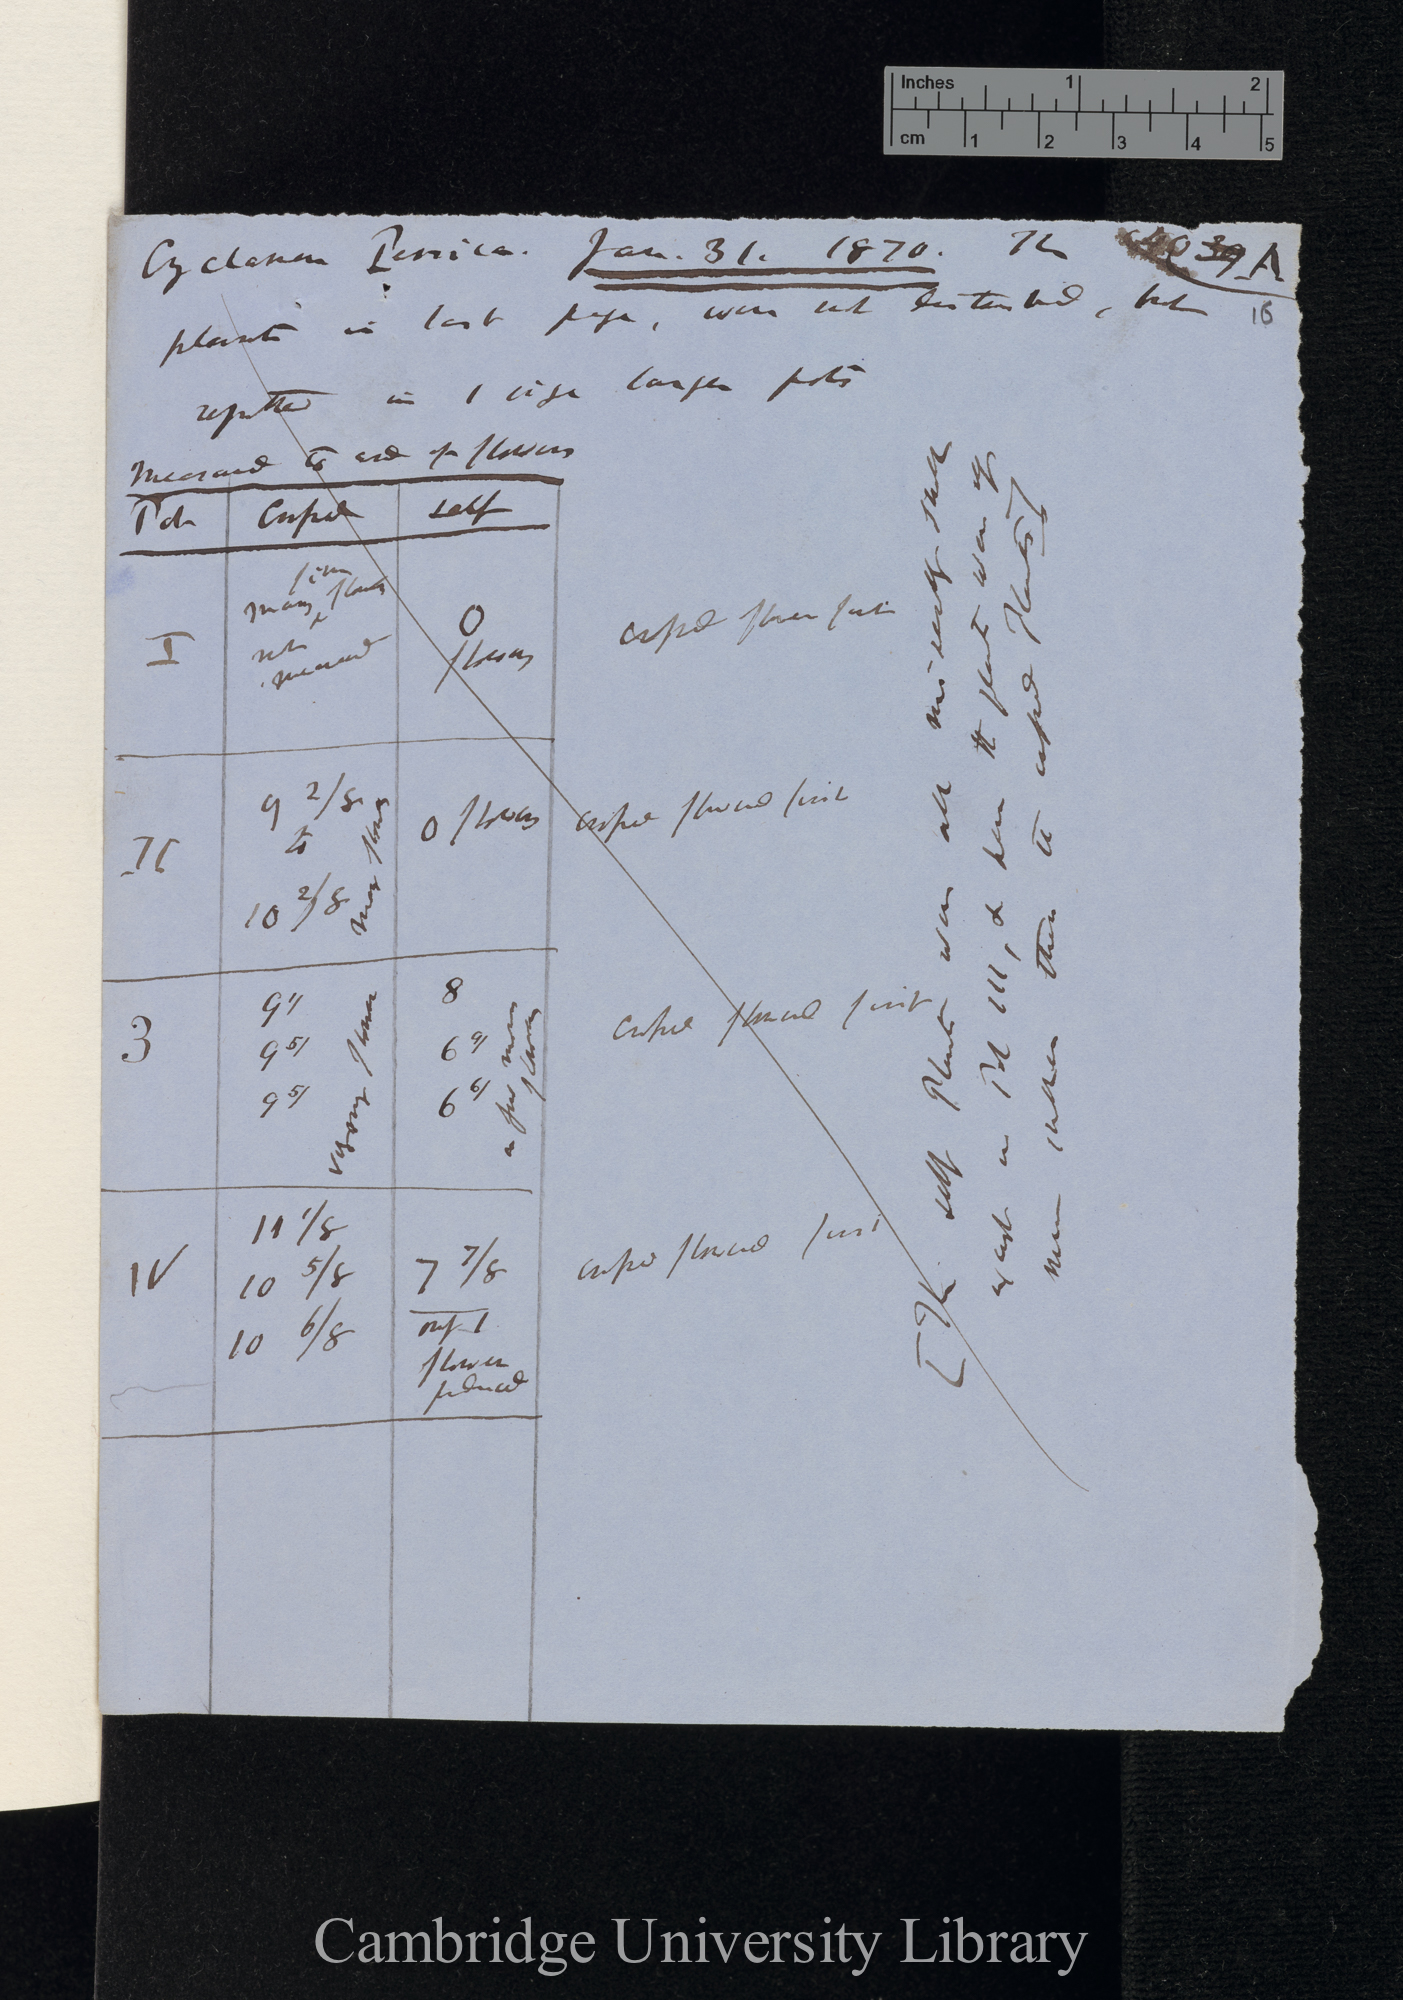 Inches 1 2
cm 1 2 3 4 5
Cyclamen Persica. Jan. 31. 1870. The 39 A
plants in last page, were not disturbed, but 16
repotted in 1 size larger pots
Measured to end of flowers
Pot Crossed Self
I many fine flowers not measured 0 flowers crossed flower first
II 9 2/8 to 10 2/8 many flowers 0 flowers crossed flowered first
3 crossed flowered first
9 8
9 5/ 6
9 5/ 6 6/
flowers
a few more flowers
IV 11 1/8 crossed flowered first
10 5/8 7 7/8
10 6/8 only 1
flower
produced
[The self Plants were all miserably small
except in Pot III, & here the plants were of
more than the crossed Plants]
Cambridge University Library